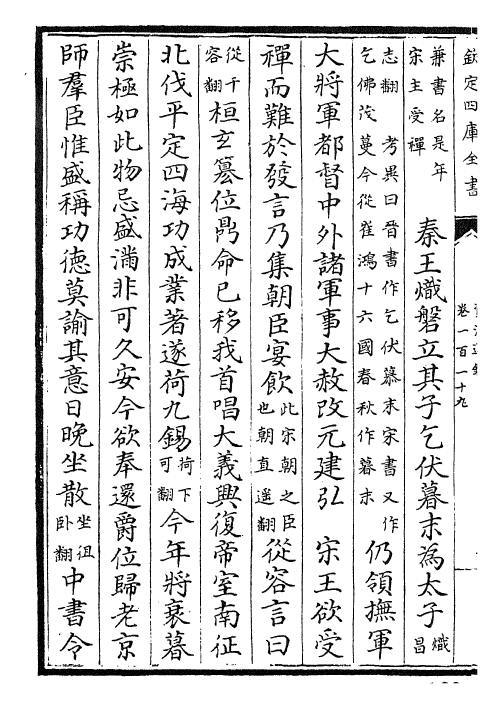 欽定四庫全書
卷一百一十九
兼書名是年宋主受禪 秦王熾磐立其子乞伏暮末為太子熾昌
志翻 考異曰晉書作乞伏慕末宋書又作乞佛茂蔓今從崔鴻十六國春秋作暮末 仍領撫軍
大將軍都督中外諸軍事大赦改元建弘 宋王欲受
禪而難於發言乃集朝臣宴飲此宋朝之臣也朝直遙翻從容言曰
從千容翻桓玄簒位鼎命已移我首唱大義興復帝室南征
北伐平定四海功成業著遂荷九錫荷下可翻今年將衰暮
崇極如此物忌盛滿非可久安今欲奉還爵位歸老京
師羣臣惟盛稱功徳莫諭其意日晚坐散坐徂卧翻中書令